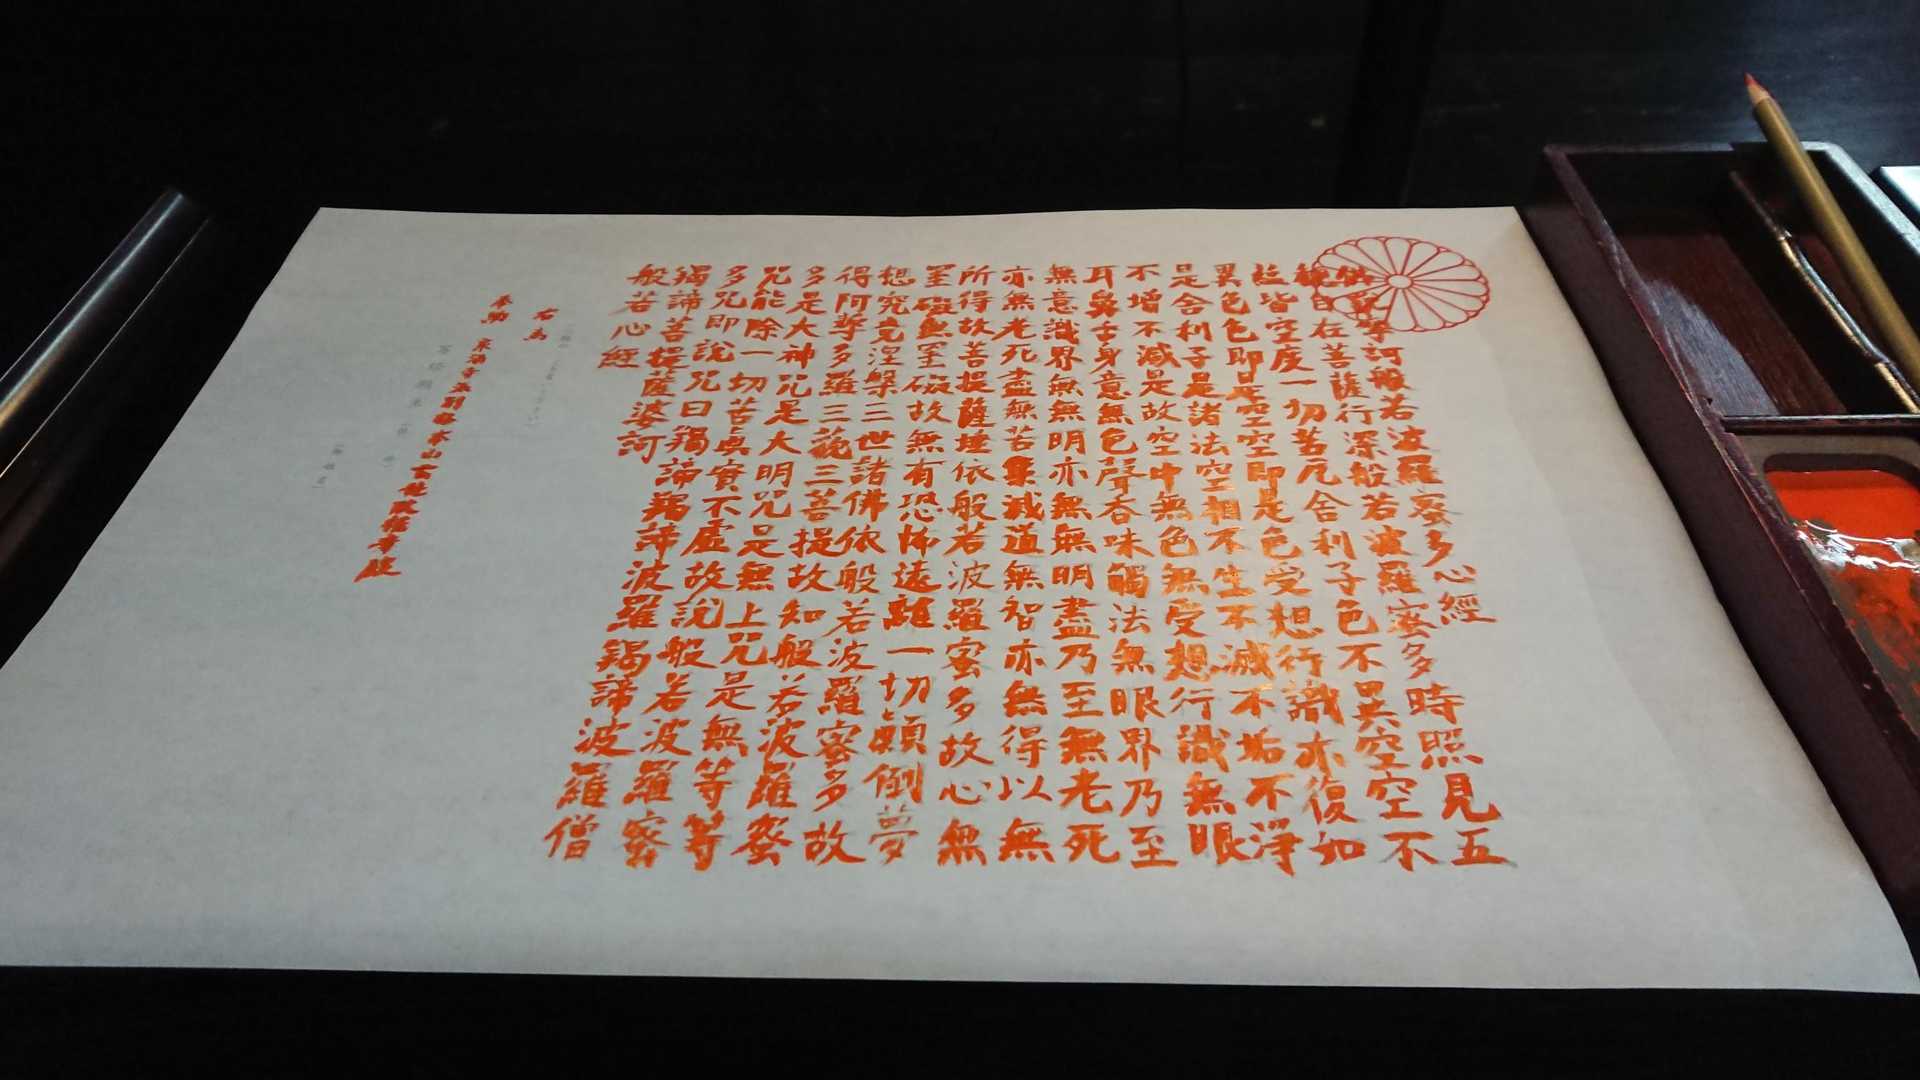 佛說摩訶般若波羅蜜多心經
觀自在菩薩行深般若波羅蜜多時照見五
蘊皆空度一切苦厄舍利子色不異空空不
異色色即是空空即是色受想行識亦復如
是舍利子是諸法空相不生不滅不垢不淨
不增不減是故空中無色無受想行識無眼
耳鼻舌身意無色聲香味觸法無眼界乃至
無意識界無無明亦無無明盡乃至無老死
亦無老死盡無苦集滅道無智亦無得以無
所得故菩提薩埵依般若波羅蜜多故心無
罣礙無罣礙故無有恐怖遠離一切顛倒夢
想究竟涅槃三世諸佛依般若波羅蜜多故
得阿耨多羅三藐三菩提故知般若波羅蜜
多是大神咒是大明咒是無上咒是無等等
咒能除一切苦真實不虛故說般若波羅蜜
多咒即說咒曰羯諦羯諦波羅羯諦波羅僧
羯諦菩提薩婆訶
般若心經
右為
奉納 泉涌寺別格本山雲龍院